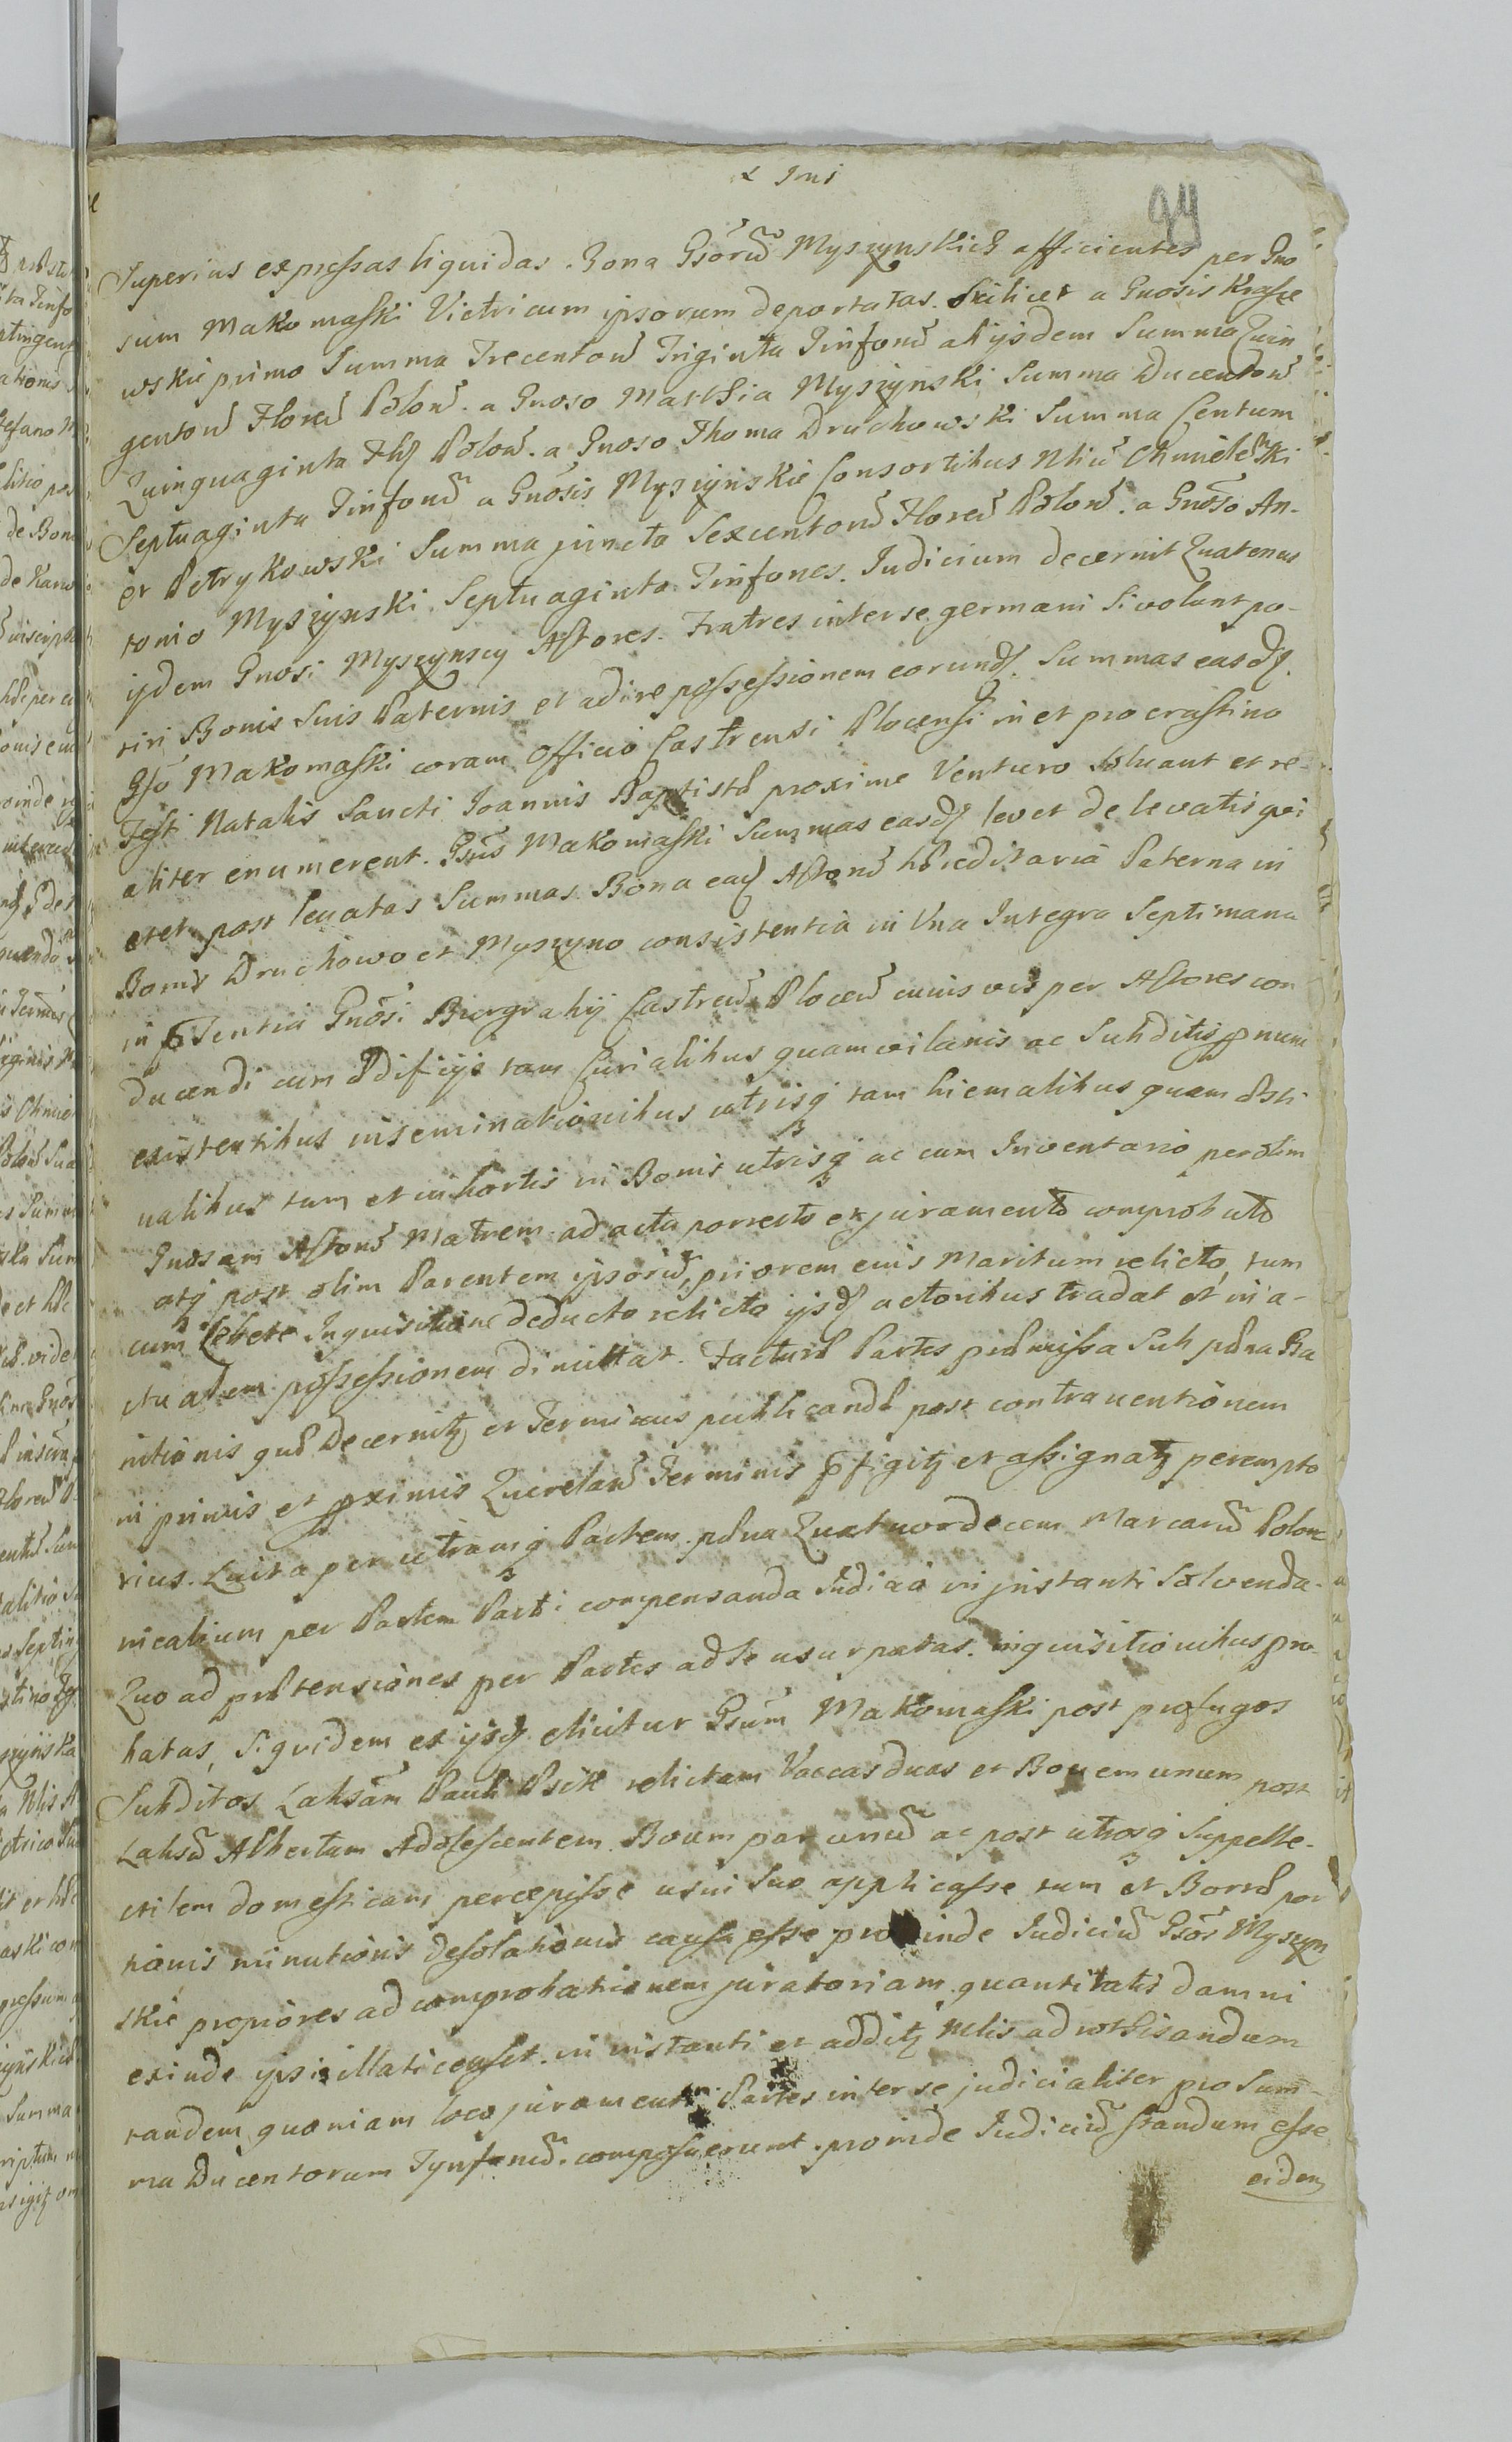 94
Superius expressas liquidas. Bona Gsorũ Myszynskich afficientes per Gno
sum Makomaski Victricum ipsorum deportatas. Scilicet a Gnosis Krasze
wskie primo Summa Trecentorũ Triginta Tinfonũ ab ijsdem Summa Quin
gentorũ Florenũ Polonũ. a Gnoso Matthia Myszynski Summa Ducentorũ
Quinquaginta Flor Polonũ. a Gnoso Thoma Druchowski Summa Centum
Septuaginta Tinfonũ a Gnosis Myszynskie Consortibus Nliũ Chmieleński
et Petrykowski Summa juncta Sexcentorũ Florenũ Polonũ. a Gnoso An-
tonio Myszynski Septuaginta Tinfones. Judicium decernit Quatenus
ijdem Gnosi Myszynscy Actores. Fratres inter se germani Si volunt po-
tiri Bonis Suis Paternis et adire possessionem eorund. Summas easd.
Gso Makomaski coram Officio Castrensi Plocensi in et pro crastino
Festi Natalis Sancti Joannis Baptistæ proxime Venturo Solvant et re-
aliter enumerent. Gsus Makomaski Summas easd levet de levatis qvi
etet post levatas Summas Bona ead Actorũ hæreditaria Paterna in
Bonis Druchowo et Myszyno consistentia in Una Integra Septimana
in præsentia Gnosi Burgrabij Castren Plocen cuiusvis per Actores con
ducendi cum ædificijs tam Curialibus quam vilanis ac Subditis pronunc
existentibus inseminationibus utrisq tam hiemalibus quam æsti
valibus tum et in hortis in Bonis utrisq ac cum Inventario per olim
Gnosam Actorũ Matrem ad acta porrecto et juramento comprobato
atq post olim Parentem ipsorũ, priorem eius Maritum relicto, tum
cum Lebete Inquisitione deducto relicto ijsd actoribus tradat et in a-
ctualem possessionem dimittat. Facturæ Partes præmissa Sub pæna Ba
nitionis quæ Decernitq et Terminus publicandæ post contraventionem
in primis et proximis Querelarũ Terminis præfigitq et assignatq perempto
rius. Luita per utramq Partem pæna Quatuordecem Marcarũ Polon
nicalium per Partem Parti compensanda Judicio in instanti Solvenda.
Quo ad prætensiones per Partes ad se usurpatas. inquisitionibus pro-
batas, Siquidem ex ijsd elicitur Gsum Makomaski post profugos
Subditos Labsam Pauli Psik relictam Vaccas duas et Bovem unum post
Labsũ Albertum Adolescentem Boum par unũ ac post utrosq Suppelle-
ctilem domesticam percepisse usui Suo applicasse tum et Borræ por
tionis minutionis desolationis causa esse proinde Judiciũ Gsos Myszyn
skie propiores ad comprobationem juratoriam quantitatis damni
exinde ipsi illati censet. in instanti et additq Mlis ad rothisandum
tandem quoniam loco juramenti Partes inter se judicialiter pro Sum-
ma Ducentorum Tynfonũ. composuerunt. proinde Judiciũ Standum esse
eidem